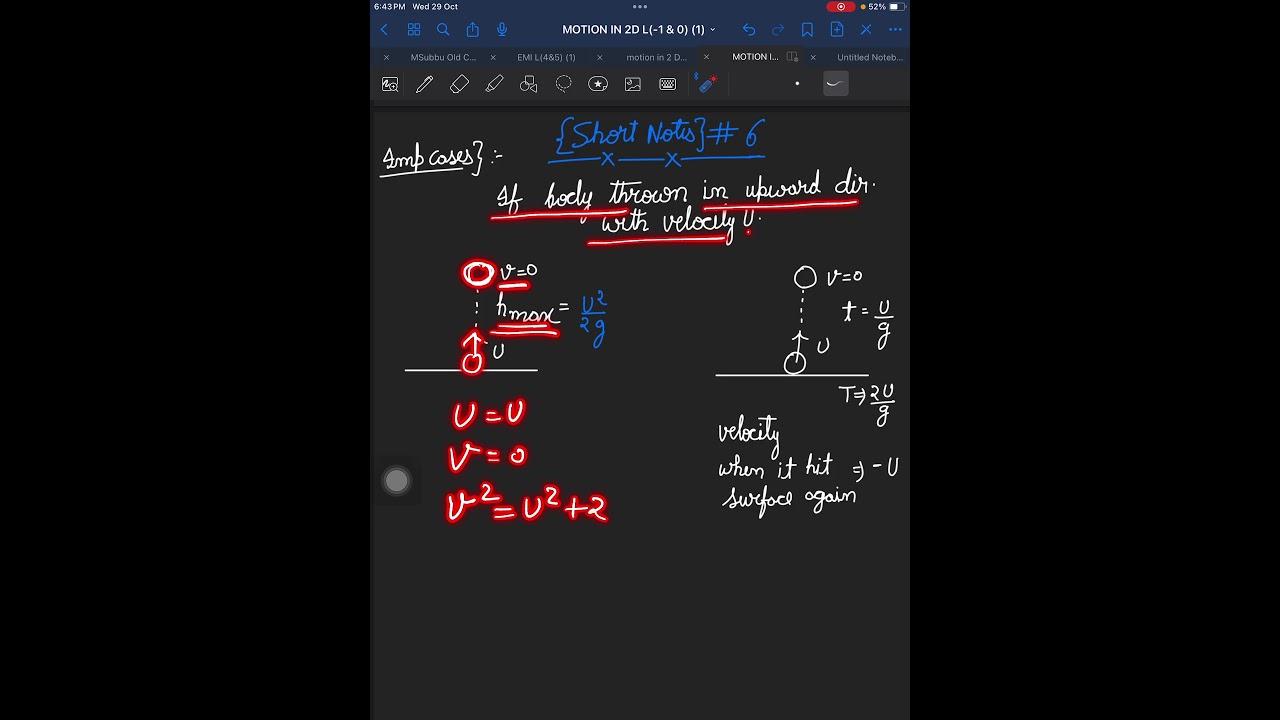 6:43 PM Wed 29 Oct
52%
MOTION IN 2D L(-1 & 0) (1)
MSubbu Old C...
EMI L(4&5) (1)
motion in 2 D...
MOTION I...
Untitled Noteb...
{Short Notes} # 6
Imp cases} :-
If body thrown in upward dir.
with velocity U.
v=0
hmax = U²/2g
U
v=0
t = U/g
U
T ⇒ 2U/g
U = U
V = 0
V² = U² + 2
velocity
when it hit ⇒ -U
surface again